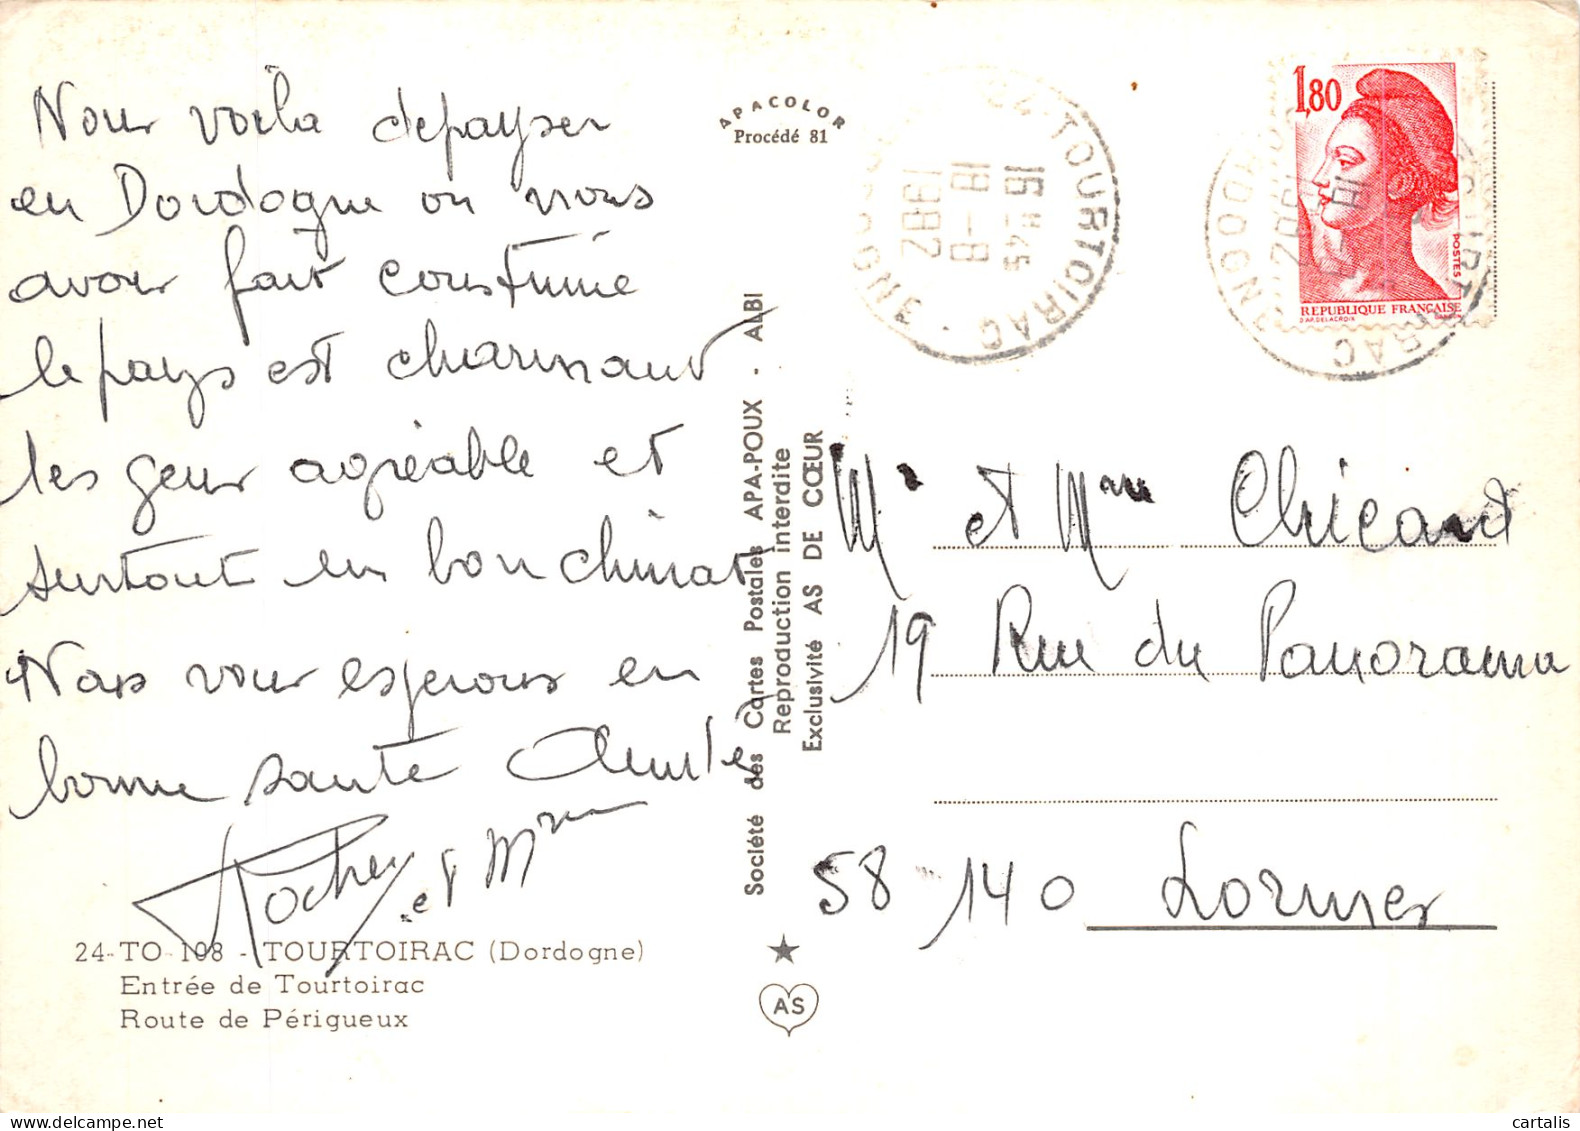 Nous voila depayser
en Dordogne ou nous
avons fait coustumé
le pays est charmant
les gens agréable et
surtout un bon climat
Nous vous esperons en
bonne santé Amitié
Rocher et Mme
24-TO-108 - TOURTOIRAC (Dordogne)
Entrée de Tourtoirac
Route de Périgueux
APACOLOR
Procédé 81
Société des Cartes Postales APA-POUX - ALBI
Reproduction interdite
Exclusivité AS DE CŒUR
AS
24 TOURTOIRAC
16 H 45
18 - 8
1982
1,80
POSTES
REPUBLIQUE FRANÇAISE
D'AP. DELACROIX GANDON
Mr et Mme Chicard
19 Rue du Panorama
58-140 Lormes
cartalis